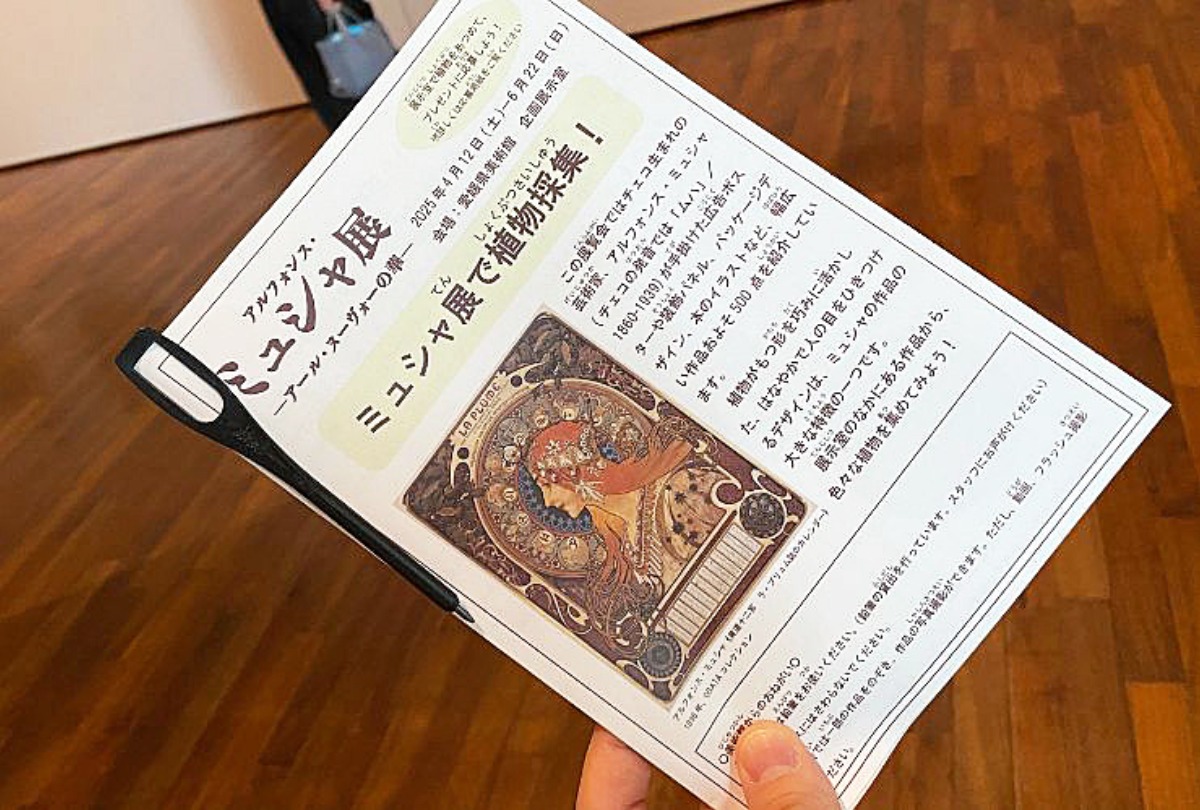 展示室で植物をみつけて、
プレゼントに応募しよう！
アルフォンス・
ミュシャ展
―アール・ヌーヴォーの華―
2025年4月12日(土)―6月22日(日)
会場：愛媛県美術館 企画展示室
てん しょくぶつさいしゅう
ミュシャ展で植物採集！
この展覧会ではチェコ生まれの
芸術家、アルフォンス・ミュシャ
（チェコの発音では「ムハ」／
1860-1939）が手掛けた広告ポス
ターや装飾パネル、パッケージデ
ザイン、本のイラストなど、幅広
い作品およそ500点を紹介してい
ます。
植物がもつ形を巧みに活かし
た、はなやかで人の目をひきつけ
るデザインは、ミュシャの作品の
大きな特徴の一つです。
展示室のなかにある作品から、
色々な植物を集めてみよう！
LA PLUME
アルフォンス・ミュシャ《黄道十二宮 ラ・プリュム誌のカレンダー》
1896年、OGATAコレクション
からのおねがい○
鉛筆をお使いください。（鉛筆の貸出を行っています。スタッフにお声がけください）
にはさわらないでください。
では一部の作品をのぞき、作品の写真撮影ができます。ただし、動画、フラッシュ撮影
ださい。